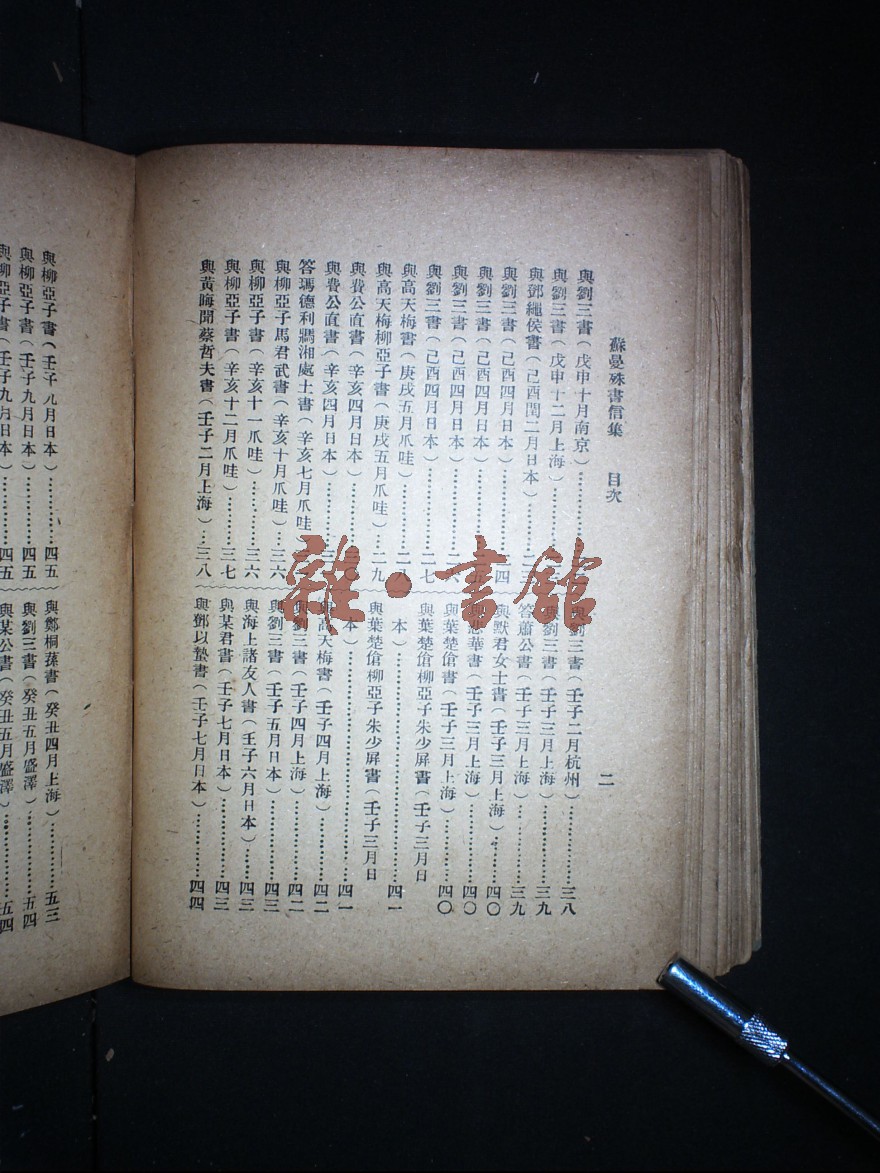 蘇曼殊書信集　目次　二
與劉三書(戊申十月南京)
與劉三書(戊申十二月上海)
與鄧繩侯書(己酉閏二月日本)
與劉三書(己酉四月日本)
與劉三書(己酉四月日本)
與劉三書(己酉四月日本)…二六
與劉三書(己酉四月日本)…二七
與高天梅書(庚戌五月爪哇)…二八
與高天梅柳亞子書(庚戌五月爪哇)…二九
與費公直書(辛亥四月日本)
與費公直書(辛亥四月日本)
答瑪德利瑪湘處士書(辛亥七月爪哇
與柳亞子馬君武書(辛亥十月爪哇)…三六
與柳亞子書(辛亥十一爪哇)…三六
與柳亞子書(辛亥十二月爪哇)…三七
與黃晦聞蔡哲夫書(壬子二月上海)…三八
與劉三書(壬子二月杭州)…三八
與劉三書(壬子三月上海)…三九
答蕭公書(壬子三月上海)…三九
與默君女士書(壬子三月上海)…四〇
華書(壬子三月上海)…四〇
與葉楚傖書(壬子三月上海)…四〇
與葉楚傖柳亞子朱少屏書(壬子三月日
本)…四一
與葉楚傖柳亞子朱少屏書(壬子三月日
本)…四一
與高天梅書(壬子四月上海)…四二
與劉三書(壬子四月上海)…四二
與劉三書(壬子五月日本)…四三
與海上諸友人書(壬子六月日本)…四三
與某君書(壬子七月日本)…四三
與鄧以蟄書(壬子七月日本)…四四
與柳亞子書(壬子八月日本)…四五
與柳亞子書(壬子九月日本)…四五
與柳亞子書(壬子九月日本)…四五
與鄭桐蓀書(癸丑四月上海)…五三
與劉三書(癸丑五月盛澤)…五四
與某公書(癸丑五月盛澤)…五四
雜·書館